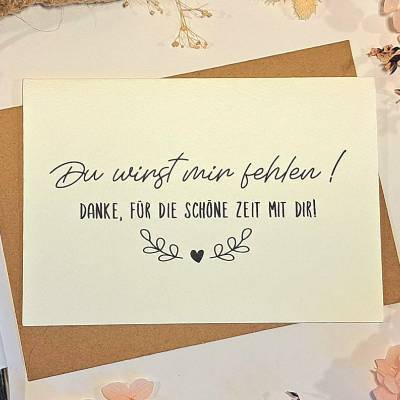 Du wirst mir fehlen!
DANKE, FÜR DIE SCHÖNE ZEIT MIT DIR!